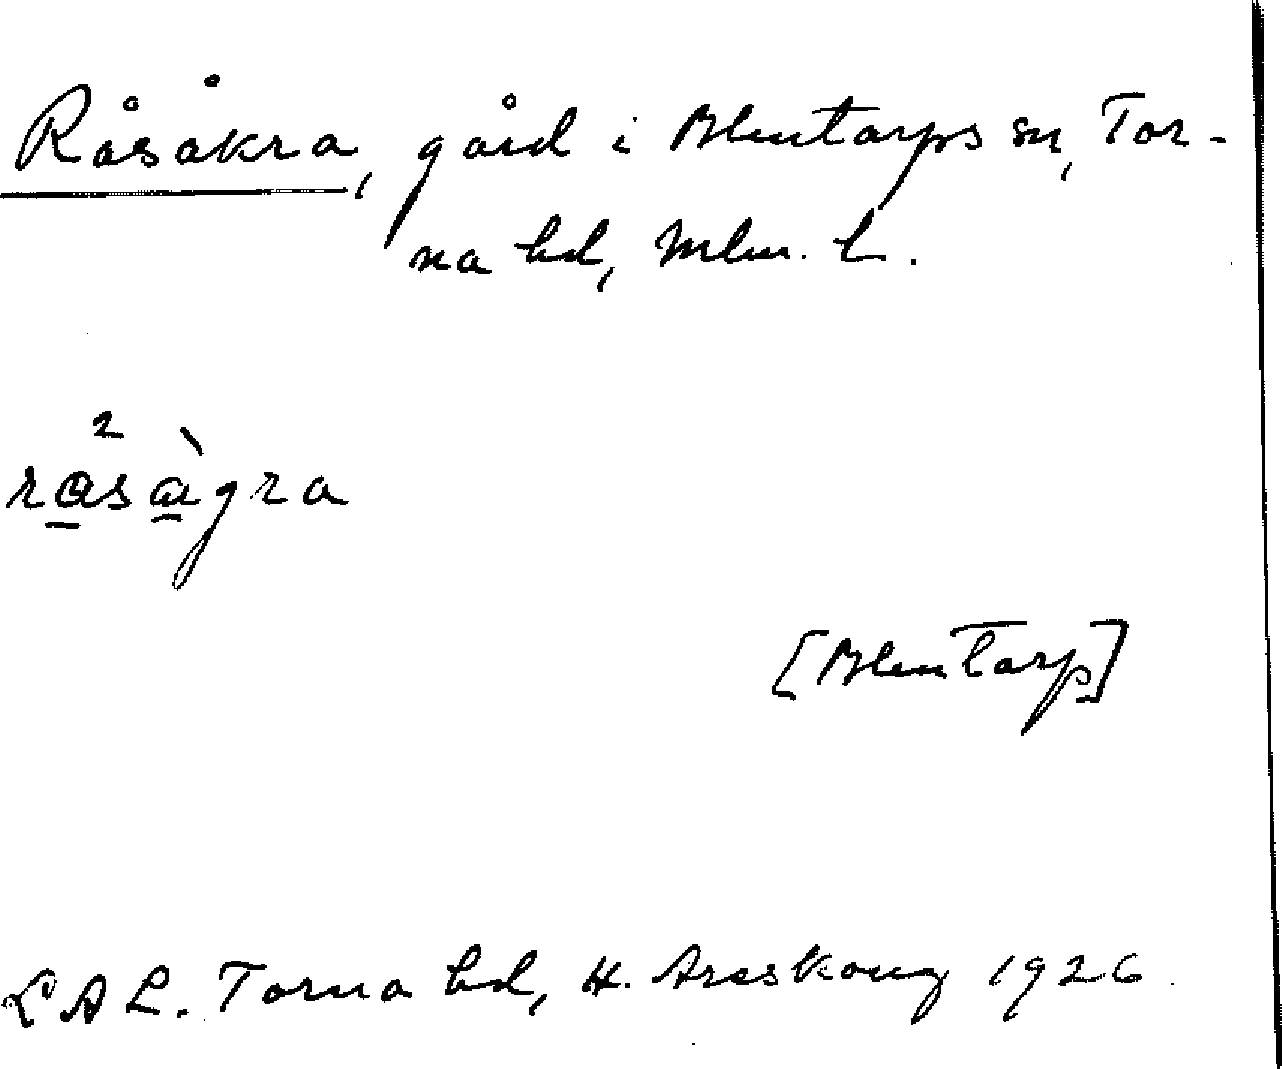 Råsåkra, gård i Blentarps sn, Tor-
na hd, Mlm. l.
råsågra
[Blentarp]
LAL. Torna hd, H. Areskoug 1926